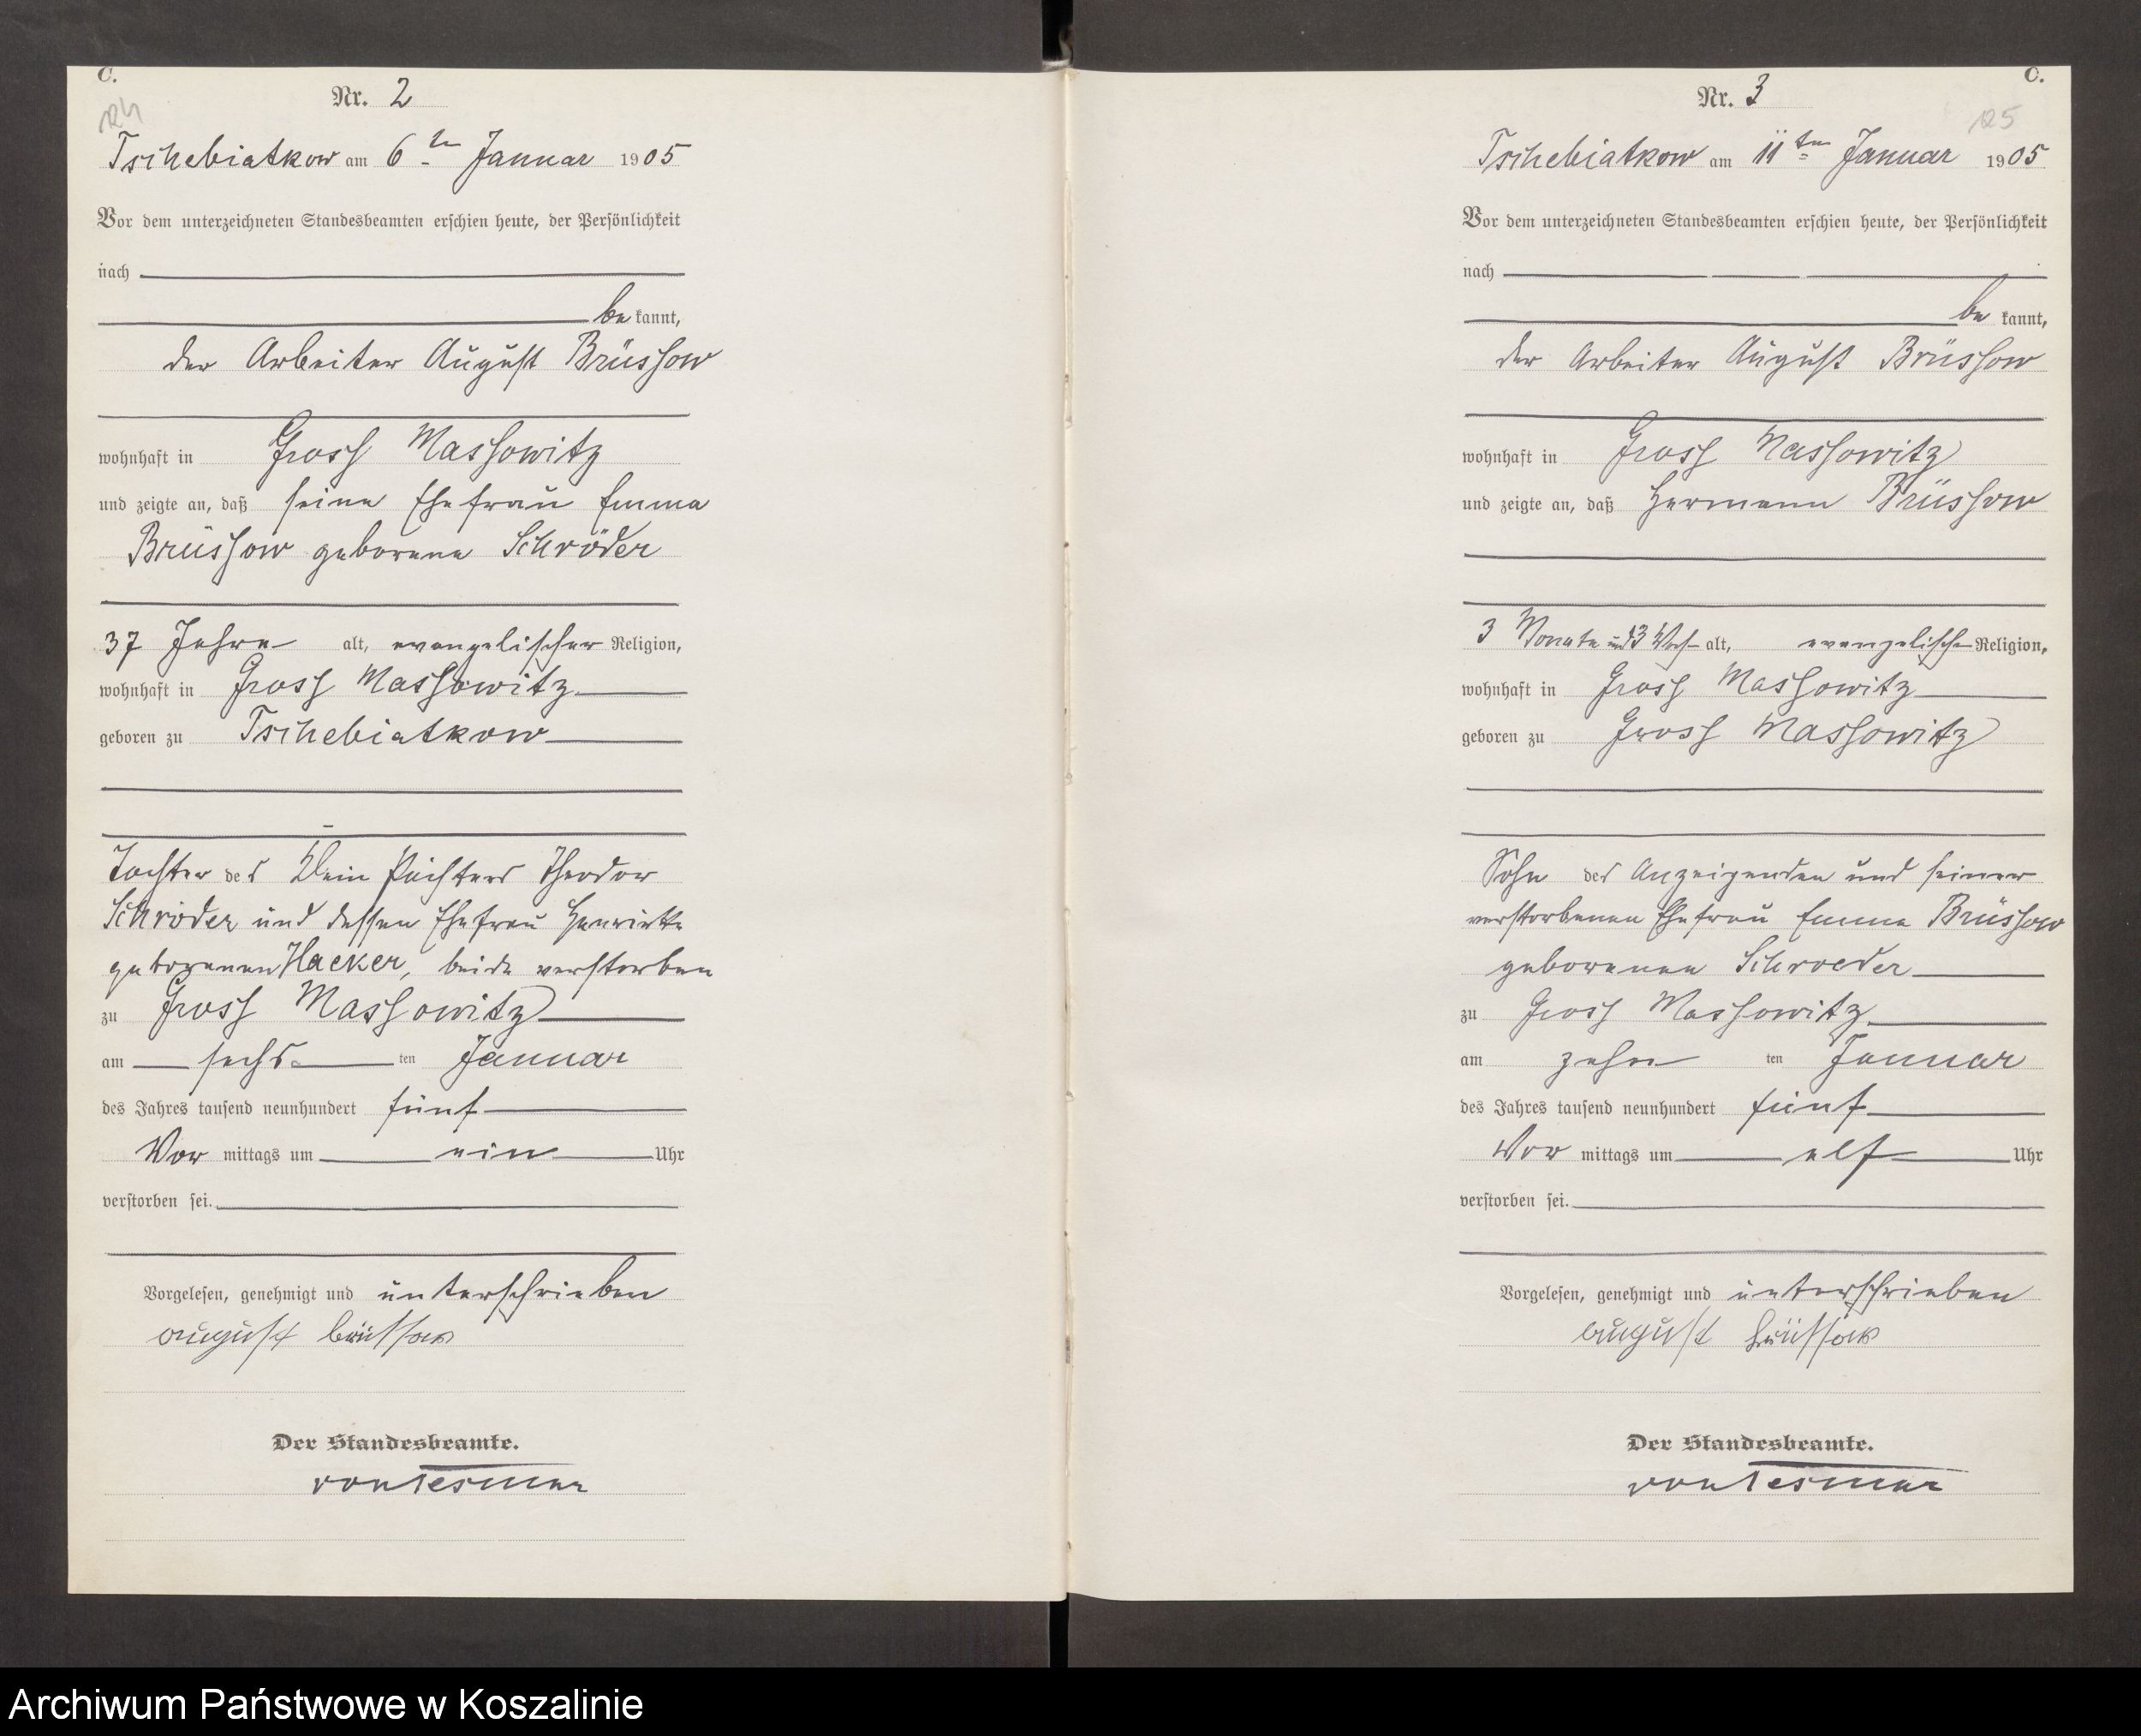 C.
Nr. 2
124
Tschebiatkow am 6ten Januar 1905
Vor dem unterzeichneten Standesbeamten erschien heute, der Persönlichkeit
nach
be kannt,
der Arbeiter August Brüssow
wohnhaft in Gross Massowitz
und zeigte an, daß seine Ehefrau Emma
Brüssow geborene Schröder
37 Jahre alt, evangelischer Religion,
wohnhaft in Gross Massowitz
geboren zu Tschebiatkow
Tochter des Pächters Theodor
Schröder und dessen Ehefrau Henriette
geborenen Hacker, beide verstorben
zu Gross Massowitz
am sechs ten Januar
des Jahres tausend neunhundert fünf
Vor mittags um ein Uhr
verstorben sei.
Vorgelesen, genehmigt und unterschrieben
august brüssow
Der Standesbeamte.
von Tesmar
C.
Nr. 3
125
Tschebiatkow am 11ten Januar 1905
Vor dem unterzeichneten Standesbeamten erschien heute, der Persönlichkeit
nach
be kannt,
der Arbeiter August Brüssow
wohnhaft in Gross Massowitz
und zeigte an, daß Hermann Brüssow
3 Monate und 3 Woch alt, evangelischer Religion,
wohnhaft in Gross Massowitz
geboren zu Gross Massowitz
Sohn des Anzeigenden und seiner
verstorbenen Ehefrau Emma Brüssow
geborenen Schroeder
zu Gross Massowitz
am zehn ten Januar
des Jahres tausend neunhundert fünf
Vor mittags um elf Uhr
verstorben sei.
Vorgelesen, genehmigt und unterschrieben
august brüssow
Der Standesbeamte.
von Tesmar
Archiwum Państwowe w Koszalinie